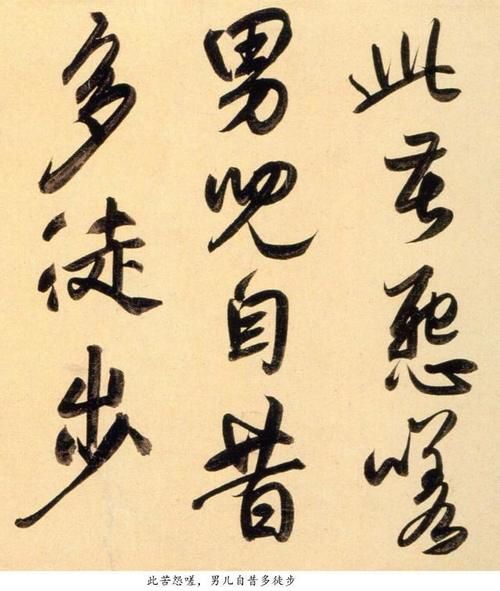 此苦怨嗟
男兒自昔
多徒步
此苦怨嗟，男儿自昔多徒步